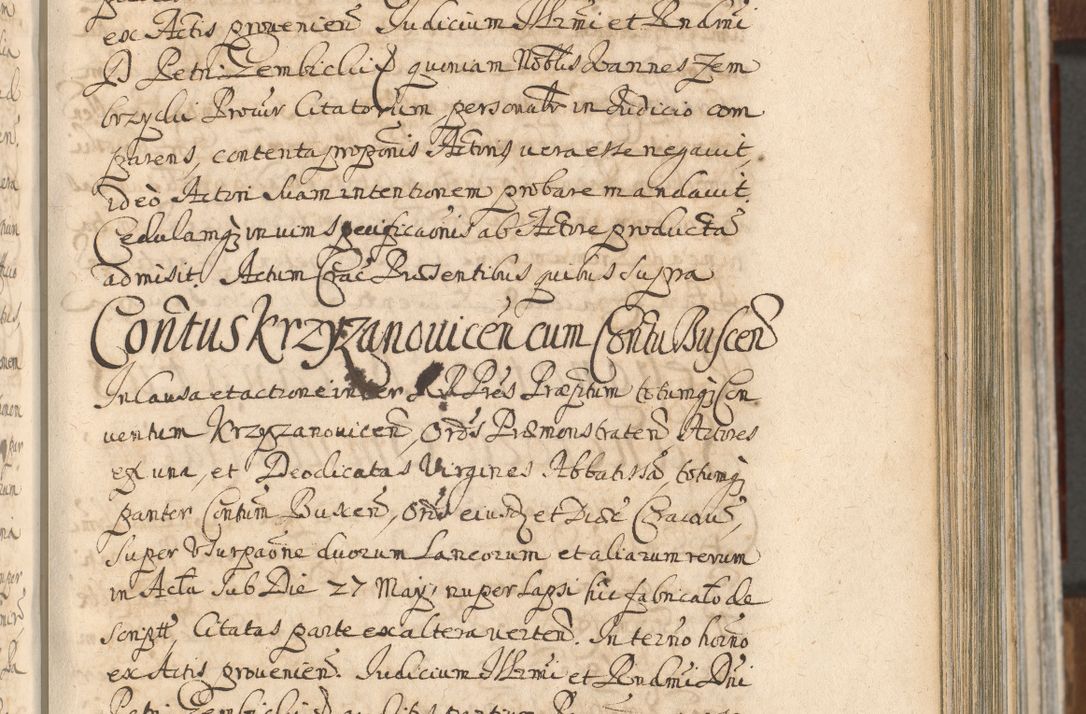 ex Actis provenień. Iudicium Illrmi et Rndmi
D Petri Gembiclii quiniam Noblis Ioannes Zem
brzycki Procur Citatorum personalr in Iudicio com
parens, contenta proponis Actoris vera esse negavit,
ideò Actori suam intentionem probare mandavit.
Cedulamq in vim specificaonis ab Actore producta
admisit. Actum Crac Praesentibus quibus supra
Conntus Krzyzanovicen cum Conntu Buscen
In Causa et actione inter RR Pres Praepitum totumq Con
ventum Krzyzanovicen, Ords Praemonstraten Actores
ex una, et Deodicatas Virgines Abbatissa, totumq
pariter Conntum Buscen, Ords eiusd et Diaec Cracovs,
super Usurpaone duorum Laneorum et aliarum rerum
in Actu sub Die 27 May nuper lapsi hic fabricato de
scriptt, Citatas parte ex altera verten. In terno horno
ex Actis provenien. Iudicium Illrmi et Rndmi Dni
Petri Gembiclii